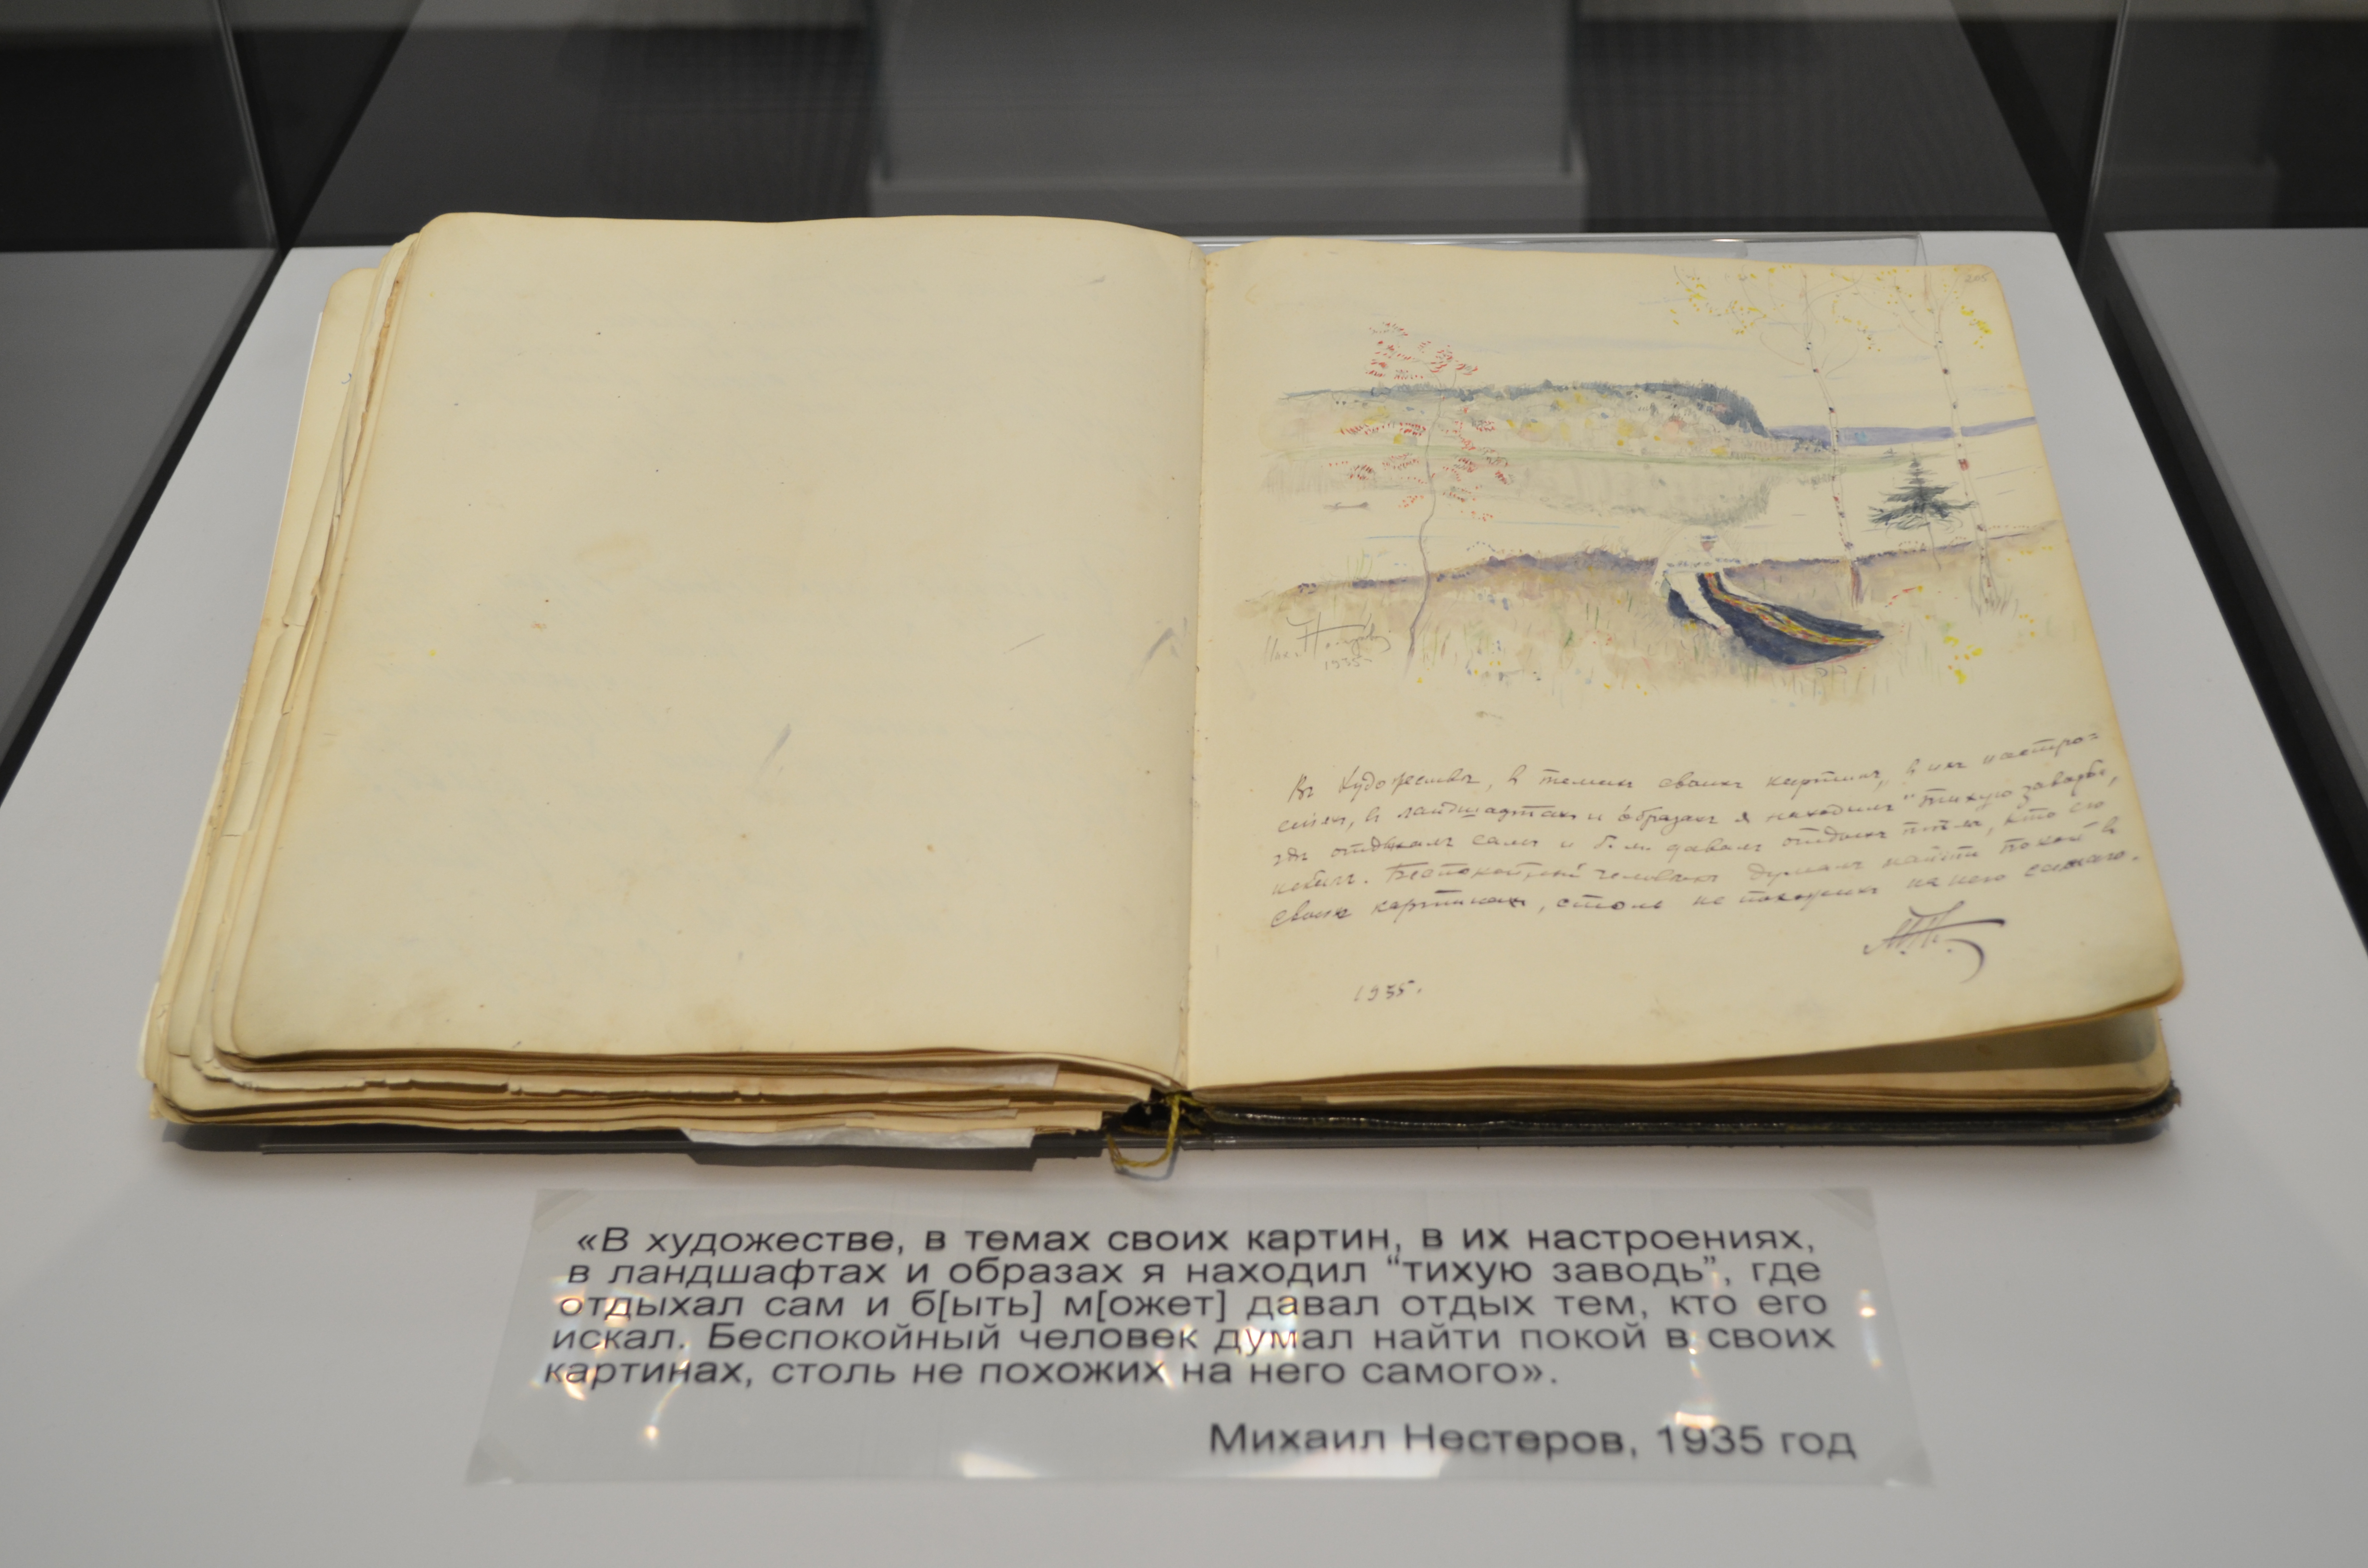 205
Мих. Нестеров
1935
Въ художествѣ, в темахъ своихъ картинъ, в ихъ настро=
еніях, в ландшафтах и образахъ я находилъ "тихую заводь",
гдѣ отдыхалъ самъ и б. м. давалъ отдыхъ тѣмъ, кто его
искалъ. Беспокойный человѣкъ думалъ найти покой в
своихъ картинахъ, столь не похожихъ на него самого.
М.Н.
1935.
«В художестве, в темах своих картин, в их настроениях,
в ландшафтах и образах я находил “тихую заводь”, где
отдыхал сам и б[ыть] м[ожет] давал отдых тем, кто его
искал. Беспокойный человек думал найти покой в своих
картинах, столь не похожих на него самого».
Михаил Нестеров, 1935 год